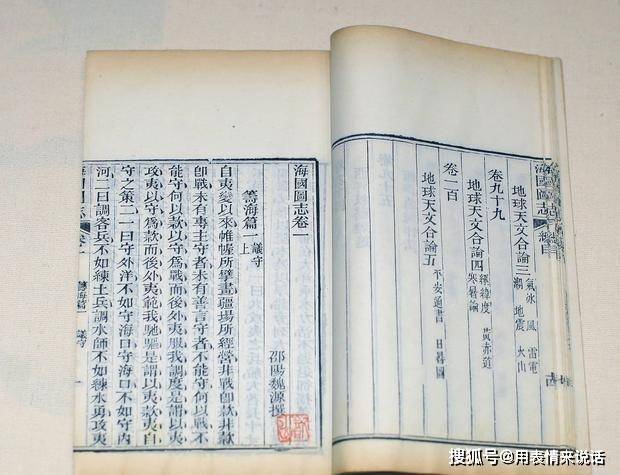 海國圖志 總目
地球天文合論三 氣 冰 風 雷電
潮 地震 火山
卷九十九
地球天文合論四 經緯度 黃赤道
寒暑論
卷一百
地球天文合論五 平安通書 日晷圖
海國圖志卷一
邵陽魏源撰
籌海篇一 議守上
自夷變以來帷幄所擘畫疆場所經營非戰卽款非款
卽戰未有專主守者未有善言守者不能守何以戰不
能守何以款以守爲戰而後外夷服我調度是謂以夷
攻夷以守爲款而後外夷範我馳驅是謂以夷款夷自
守之策二一曰守外洋不如守海口守海口不如守內
河二曰調客兵不如練土兵調水師不如練水勇攻夷
卷一 籌海篇一 議守
搜狐号@用表情来说话